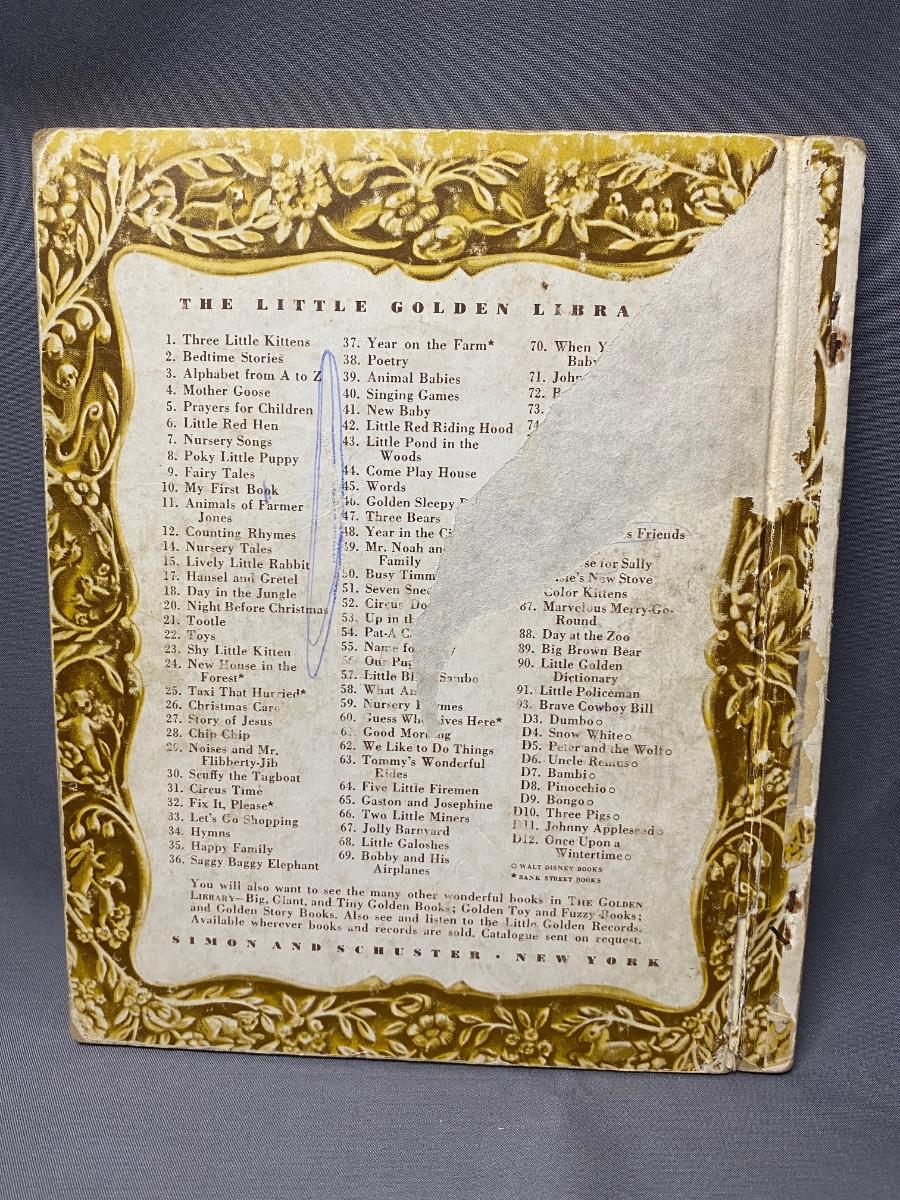 THE LITTLE GOLDEN LIBRA
1. Three Little Kittens
2. Bedtime Stories
3. Alphabet from A to Z
4. Mother Goose
5. Prayers for Children
6. Little Red Hen
7. Nursery Songs
8. Poky Little Puppy
9. Fairy Tales
10. My First Book
11. Animals of Farmer
Jones
12. Counting Rhymes
14. Nursery Tales
15. Lively Little Rabbit
17. Hansel and Gretel
18. Day in the Jungle
20. Night Before Christmas
21. Tootle
22. Toys
23. Shy Little Kitten
24. New House in the
Forest*
25. Taxi That Hurried*
26. Christmas Caro
27. Story of Jesus
28. Chip Chip
29. Noises and Mr.
Flibberty-Jib
30. Scuffy the Tugboat
31. Circus Time
32. Fix It, Please*
33. Let's Go Shopping
34. Hymns
35. Happy Family
36. Saggy Baggy Elephant
37. Year on the Farm*
38. Poetry
39. Animal Babies
40. Singing Games
41. New Baby
42. Little Red Riding Hood
43. Little Pond in the
Woods
44. Come Play House
45. Words
46. Golden Sleepy
47. Three Bears
48. Year in the Ci
49. Mr. Noah an
Family
50. Busy Timm
51. Seven Snee
52. Circus Do
53. Up in th
54. Pat-A C
55. Name fo
56. Our Pup
57. Little Bl Sambo
58. What An
59. Nursery Rhymes
60. Guess Who Lives Here*
6 . Good Morning
62. We Like to Do Things
63. Tommy's Wonderful
Rides
64. Five Little Firemen
65. Gaston and Josephine
66. Two Little Miners
67. Jolly Barnyard
68. Little Galoshes
69. Bobby and His
Airplanes
70. When Y
Baby
71. John
72.
73.
74
s Friends
se for Sally
sie's New Stove
Color Kittens
87. Marvelous Merry-Go-
Round
88. Day at the Zoo
89. Big Brown Bear
90. Little Golden
Dictionary
91. Little Policeman
93. Brave Cowboy Bill
D3. Dumbo○
D4. Snow White○
D5. Peter and the Wolf○
D6. Uncle Remus○
D7. Bambi○
D8. Pinocchio○
D9. Bongo○
D10. Three Pigs○
D11. Johnny Appleseed○
D12. Once Upon a
Wintertime○
○ WALT DISNEY BOOKS
* BANK STREET BOOKS
You will also want to see the many other wonderful books in THE GOLDEN
LIBRARY—Big, Giant, and Tiny Golden Books; Golden Toy and Fuzzy Books;
and Golden Story Books. Also see and listen to the Little Golden Records.
Available wherever books and records are sold. Catalogue sent on request.
SIMON AND SCHUSTER · NEW YORK